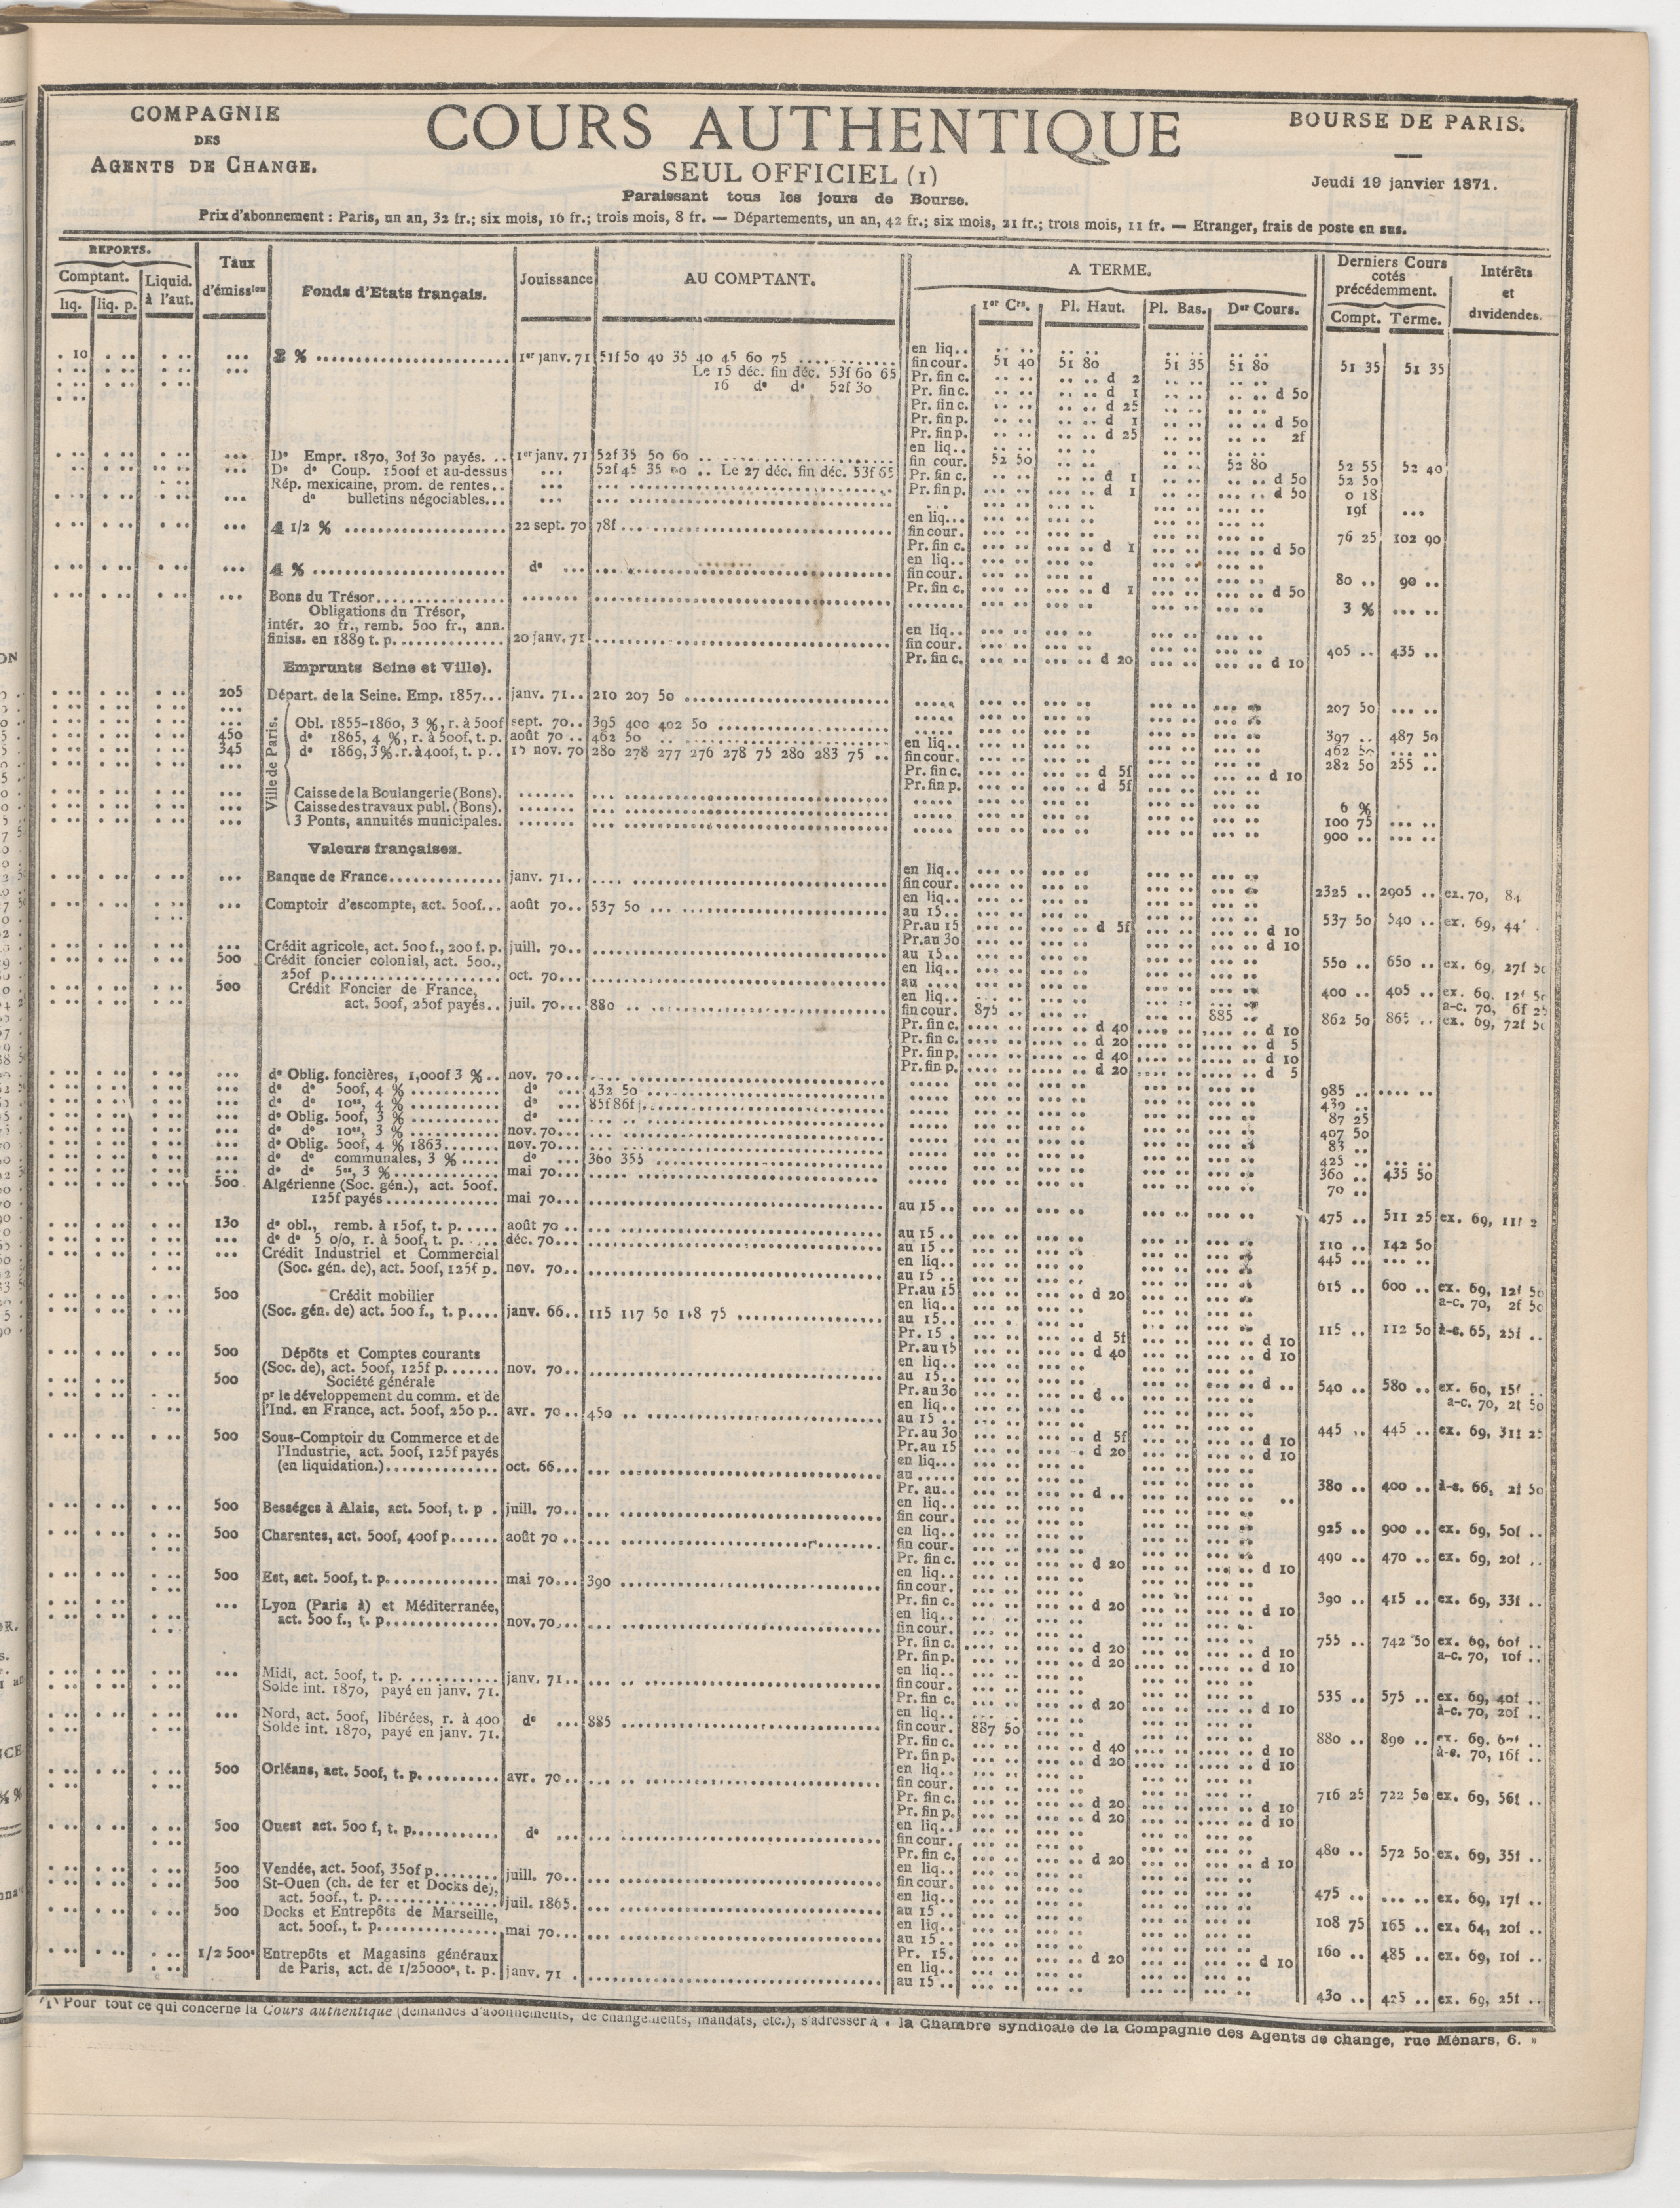 COMPAGNIE
DES
AGENTS DE CHANGE.
COURS AUTHENTIQUE
SEUL OFFICIEL (1)
Paraissant tous les jours de Bourse.
BOURSE DE PARIS.
Jeudi 19 janvier 1871.
Prix d'abonnement : Paris, un an, 32 fr.; six mois, 16 fr.; trois mois, 8 fr. — Départements, un an, 42 fr.; six mois, 21 fr.; trois mois, 11 fr. — Etranger, frais de poste en sus.
REPORTS.
Comptant.
liq. liq. p.
Liquid. à l'aut.
Taux d'émission
Fonds d'Etats français.
Jouissance
AU COMPTANT.
A TERME.
1er Crs. Pl. Haut. Pl. Bas. Der Cours.
Derniers Cours cotés précédemment.
Compt. Terme.
Intérêts et dividendes.
10 3 % 1er janv. 71 51f 50 40 35 40 45 60 75 en liq.
Le 15 déc. fin déc. 53f 60 65 fin cour. 51 40 51 80 51 35 51 80 51 35 51 35
16 do do 52f 30 Pr. fin c. d 2
Pr. fin c. d 1 d 50
Pr. fin c. d 25
Pr. fin p. d 1 d 50
Pr. fin p. d 25 2f
Do Empr. 1870, 30f 30 payés. 1er janv. 71 52f 35 50 60 en liq.
Do do Coup. 1500f et au-dessus 52f 45 35 60 Le 27 déc. fin déc. 53f 65 fin cour. 52 50 52 80 52 55 52 40
Rép. mexicaine, prom. de rentes Pr. fin c. d 1 d 50 52 50
do bulletins négociables Pr. fin p. d 1 d 50 0 18
19f
4 1/2 % 22 sept. 70 78f en liq.
fin cour. 76 25 102 90
Pr. fin c. d 1 d 50
4 % do en liq.
fin cour. 80 90
Bons du Trésor Pr. fin c. d 1 d 50
3 %
Obligations du Trésor,
intér. 20 fr., remb. 500 fr., ann.
finiss. en 1889 t. p. 20 janv. 71 en liq.
fin cour. 405 435
Pr. fin c. d 20 d 10
Emprunts Seine et Ville).
205 Départ. de la Seine. Emp. 1857 janv. 71 210 207 50 207 50
Ville de Paris.
Obl. 1855-1860, 3 %, r. à 500f sept. 70 395 400 402 50 397 487 50
450 do 1865, 4 %, r. à 500f, t. p. août 70 462 50 462 50
345 do 1869, 3 %. r. à 400f, t. p. 15 nov. 70 280 278 277 276 278 75 280 283 75 en liq. 282 50 255
fin cour.
Pr. fin c. d 5f d 10
Pr. fin p. d 5f
Caisse de la Boulangerie (Bons). 6 %
Caisse des travaux publ. (Bons). 100 75
3 Ponts, annuités municipales. 900
Valeurs françaises.
Banque de France janv. 71 en liq.
fin cour. 2325 2905 ex. 70, 84
Comptoir d'escompte, act. 500f août 70 537 50 en liq.
au 15 537 50 540 ex. 69, 44
Pr. au 15 d 5f d 10
Pr. au 30 d 10
Crédit agricole, act. 500 f., 200 f. p. juill. 70 au 15 550 650 ex. 69, 27f 50
500 Crédit foncier colonial, act. 500.,
250f p. oct. 70 en liq.
au 400 405 ex. 69, 12f 50
a-c. 70, 6f 25
500 Crédit Foncier de France,
act. 500f, 250f payés juil. 70 880 en liq.
fin cour. 875 885 862 50 865 ex. 69, 72f 50
Pr. fin c. d 40 d 10
Pr. fin c. d 20 d 5
Pr. fin p. d 40 d 10
Pr. fin p. d 20 d 5
do Oblig. foncières, 1,000f 3 % nov. 70 985
do do 500f, 4 % do 432 50 430
do do 10es, 4 % do 85f 86f 87 25
do Oblig. 500f, 3 % do 407 50
do do 10es, 3 % nov. 70 83
do Oblig. 500f, 4 % 1863 nov. 70 425
do do communales, 3 % do 360 355 360 435 50
do do 5es, 3 % mai 70 70
500 Algérienne (Soc. gén.), act. 500f.
125f payés mai 70 au 15 475 511 25 ex. 69, 11f 2
130 do obl., remb. à 150f, t. p. août 70 au 15 110 142 50
do do 5 0/0, r. à 500f, t. p. déc. 70 au 15 445
Crédit Industriel et Commercial
(Soc. gén. de), act. 500f, 125f p. nov. 70 en liq.
au 15 615 600 ex. 69, 12f 50
Pr. au 15 d 20 a-c. 70, 2f 50
500 Crédit mobilier
(Soc. gén. de) act. 500 f., t. p. janv. 66 115 117 50 118 75 en liq.
au 15 115 112 50 à-c. 65, 25f
Pr. 15 d 5f d 10
Pr. au 15 d 40 d 10
500 Dépôts et Comptes courants
(Soc. de), act. 500f, 125f p. nov. 70 en liq.
au 15 540 580 ex. 69, 15f
Pr. au 30 d d a-c. 70, 2f 50
500 Société générale
pr le développement du comm. et de
l'Ind. en France, act. 500f, 250 p. avr. 70 450 en liq.
au 15 445 445 ex. 69, 31f 25
Pr. au 30 d 5f d 10
Pr. au 15 d 20 d 10
500 Sous-Comptoir du Commerce et de
l'Industrie, act. 500f, 125f payés
(en liquidation.) oct. 66 en liq.
au 380 400 à-c. 66, 2f 50
Pr. au d
500 Bességes à Alais, act. 500f, t. p. juill. 70 en liq.
fin cour. 925 900 ex. 69, 50f
500 Charentes, act. 500f, 400f p. août 70 en liq.
fin cour. 490 470 ex. 69, 20f
Pr. fin c. d 20 d 10
500 Est, act. 500f, t. p. mai 70 390 en liq.
fin cour. 390 415 ex. 69, 33f
Pr. fin c. d 20 d 10
Lyon (Paris à) et Méditerranée,
act. 500 f., t. p. nov. 70 en liq.
fin cour. 755 742 50 ex. 69, 60f
Pr. fin c. d 20 d 10 a-c. 70, 10f
Pr. fin p. d 20 d 10
Midi, act. 500f, t. p. janv. 71 en liq.
Solde int. 1870, payé en janv. 71. fin cour. 535 575 ex. 69, 40f
Pr. fin c. d 20 d 10 à-c. 70, 20f
Nord, act. 500f, libérées, r. à 400 do 885 en liq.
Solde int. 1870, payé en janv. 71. fin cour. 887 50 880 890 ex. 69.
Pr. fin c. d 40 d 10 à-c. 70, 16f
Pr. fin p. d 20 d 10
500 Orléans, act. 500f, t. p. avr. 70 en liq.
fin cour. 716 25 722 50 ex. 69, 56f
Pr. fin c. d 20 d 10
Pr. fin p. d 20 d 10
500 Ouest act. 500 f, t. p. do en liq.
fin cour. 480 572 50 ex. 69, 35f
Pr. fin c. d 20 d 10
500 Vendée, act. 500f, 350f p. juill. 70 en liq.
fin cour. 475 ex. 69, 17f
500 St-Ouen (ch. de fer et Docks de),
act. 500f., t. p. juil. 1865. en liq.
au 15 108 75 165 ex. 64, 20f
500 Docks et Entrepôts de Marseille,
act. 500f., t. p. mai 70 en liq.
au 15 160 485 ex. 69, 10f
Pr. 15. d 20 d 10
1/2 500e Entrepôts et Magasins généraux
de Paris, act. de 1/25000e, t. p. janv. 71 en liq.
au 15 430 425 ex. 69, 25f
(1) Pour tout ce qui concerne la Cours authentique (demandes d'abonnements, de changements, mandats, etc.), s'adresser à « la Chambre syndicale de la Compagnie des Agents de change, rue Ménars, 6. »